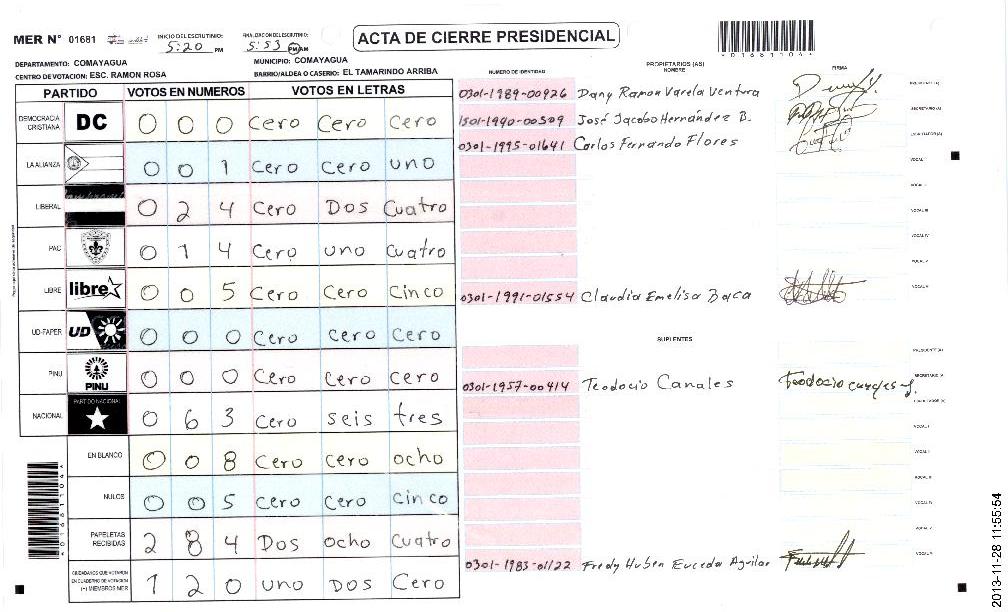 MER N° 01681
INICIO DEL ESCRUTINIO: 5:20 PM
FINALIZACION DEL ESCRUTINIO: 5:53 PM AM
ACTA DE CIERRE PRESIDENCIAL
*01681104*
DEPARTAMENTO: COMAYAGUA
MUNICIPIO: COMAYAGUA
CENTRO DE VOTACION: ESC. RAMON ROSA
BARRIO/ALDEA O CASERIO: EL TAMARINDO ARRIBA
PARTIDO VOTOS EN NUMEROS VOTOS EN LETRAS
DEMOCRACIA CRISTIANA DC 0 0 0 Cero Cero Cero
LA ALIANZA 0 0 1 Cero Cero uno
LIBERAL 0 2 4 Cero Dos Cuatro
PAC 0 1 4 Cero uno cuatro
LIBRE libre 0 0 5 Cero Cero Cinco
UD-FAPER UD 0 0 0 Cero cero Cero
PINU PINU 0 0 0 Cero cero cero
NACIONAL PARTIDO NACIONAL 0 6 3 Cero seis tres
EN BLANCO 0 0 8 Cero cero ocho
NULOS 0 0 5 Cero Cero cinco
PAPELETAS RECIBIDAS 2 8 4 Dos ocho cuatro
CIUDADANOS QUE VOTARON EN CUADERNO DE VOTACION (+) MIEMBROS MER 1 2 0 uno Dos Cero
NUMERO DE IDENTIDAD
PROPIETARIOS (AS)
NOMBRE
FIRMA
0301-1989-00926 Dany Ramon Varela Ventura PRESIDENTE(A)
1501-1990-00509 José Jacobo Hernández B. SECRETARIO(A)
0301-1995-01641 Carlos Fernando Flores ESCRUTADOR(A)
VOCAL I
VOCAL II
VOCAL III
VOCAL IV
VOCAL V
0301-1991-01554 Claudia Emelisa Baca
SUPLENTES
PRESIDENTE(A)
0301-1957-00414 Teodocio Canales SECRETARIO (A)
ESCRUTADOR (A)
VOCAL I
VOCAL II
VOCAL III
VOCAL IV
VOCAL V
0301-1983-01122 Fredy Huben Euceda Aguilar
*01681104*
2013-11-28 11:55:54